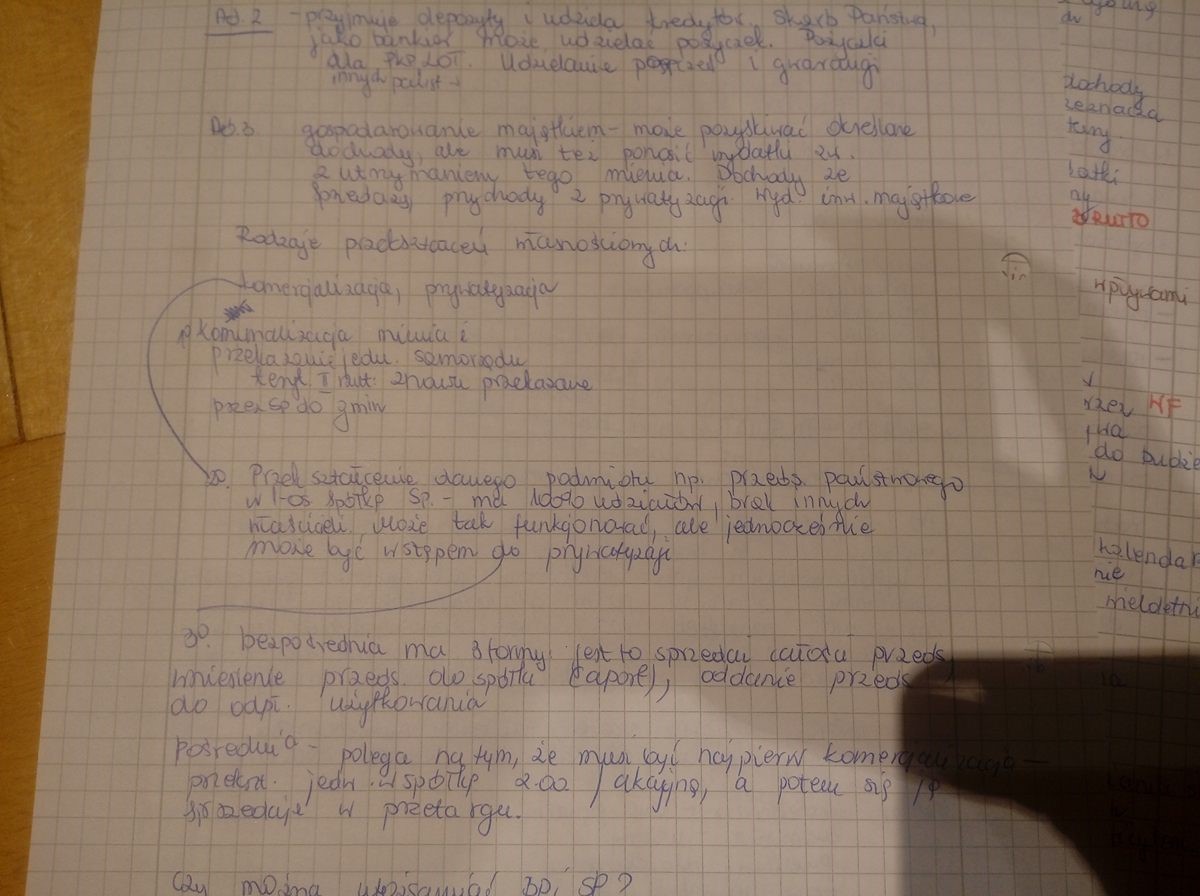 Ad. 2 - przyjmuje depozyty i udziela kredytów. Skarb Państwa,
jako bankier może udzielać pożyczek. Pożyczki
dla PKP LOT. Udzielanie i gwarancji
innych państ
Ad. 3. gospodarowanie majątkiem - może pozyskiwać określone
dochody, ale musi też ponosić wydatki zw.
z utrzymaniem tego mienia. Dochody ze
sprzedaży, przychody z prywatyzacji. Wyd. inw. majątkowe
Rodzaje przekształceń własnościowych:
komercjalizacja, prywatyzacja
1º Komunalizacja mienia i
przekazanie jedn. samorządu
teryt. II znowu przekazane
przez SP do gmin
2º. Przekształcenie danego podmiotu np. przeds. państwowego
w 1-os spółkę SP. - ma 100% udziałów, brak innych
właścicieli. Może tak funkcjonować, ale jednocześnie
może być wstępem do prywatyzacji
3º. bezpośrednia ma 3 formy jest to sprzedaż całości przeds,
wniesienie przeds. do spółki (aport), oddanie przeds
do odpł. użytkowania
Pośrednia - polega na tym, że musi być najpierw komercjalizacja -
przekszt. jedn. w spółkę z.o.o / akcyjną, a potem się ją
sprzedaje w przetargu.
Czy można utożsamiać BP i SP?
dochody
zeznacza
BRUTTO
wpływami
WF
do budże
kalendar
nie